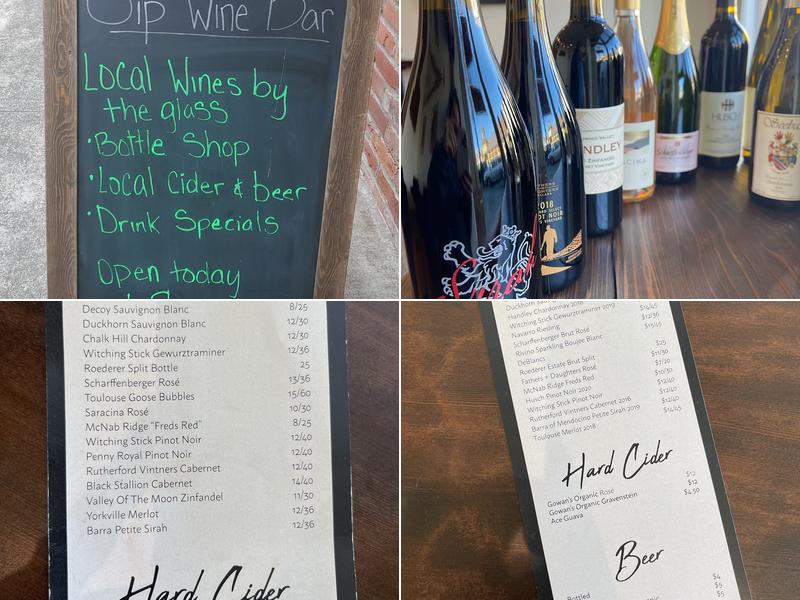 Sip Wine Bar
Local Wines by
the glass
• Bottle Shop
• Local Cider & beer
• Drink Specials
Open today
2018
PINOT NOIR
ZINFANDEL
HUSCH
Decoy Sauvignon Blanc 8/25
Duckhorn Sauvignon Blanc 12/30
Chalk Hill Chardonnay 12/30
Witching Stick Gewurztraminer 12/36
Roederer Split Bottle 25
Scharffenberger Rosé 13/36
Toulouse Goose Bubbles 15/60
Saracina Rosé 10/30
McNab Ridge "Freds Red" 8/25
Witching Stick Pinot Noir 12/40
Penny Royal Pinot Noir 12/40
Rutherford Vintners Cabernet 12/40
Black Stallion Cabernet 14/40
Valley Of The Moon Zinfandel 11/30
Yorkville Merlot 12/36
Barra Petite Sirah 12/36
Hard Cider
Handley Chardonnay 2018
Witching Stick Gewurztraminer 2019 $14/45
Navarro Riesling $12/36
Scharffenberger Brut Rosé $15/45
Rivino Sparkling Boujee Blanc
DeBlancs
Roederer Estate Brut Split $25
Fathers + Daughters Rosé $11/30
McNab Ridge Freds Red $7/20
Husch Pinot Noir 2020 $10/30
Witching Stick Pinot Noir $12/40
Rutherford Vintners Cabernet 2016 $12/40
Barra of Mendocino Petite Sirah 2019 $12/40
Toulouse Merlot 2018 $14/45
Hard Cider
Gowan's Organic Rosé $12
Gowan's Organic Gravenstein $12
Ace Guava $4.50
Beer
Bottled $4
$5
$5